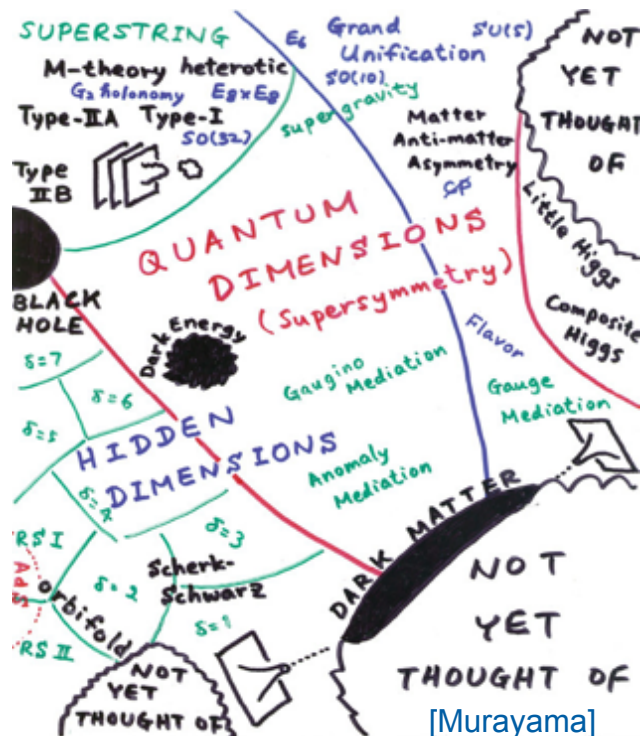 SUPERSTRING
M-theory heterotic
G₂ holonomy E₈×E₈
Type-IIA Type-I
SO(32)
Type
IIB
E₆ Grand
Unification
SU(5)
SO(10)
supergravity
Matter
Anti-matter
Asymmetry
CP
NOT
YET
THOUGHT
OF
Little Higgs
Composite
Higgs
QUANTUM
DIMENSIONS
(Supersymmetry)
BLACK
HOLE
Dark Energy
Flavor
Gaugino
Mediation
Gauge
Mediation
Anomaly
Mediation
δ=7
δ=6
δ=5
HIDDEN
DIMENSIONS
δ=4
δ=3
RS I
AdS
orbifold
δ=2
Scherk-
Schwarz
δ=1
RS II
DARK MATTER
NOT
YET
THOUGHT OF
NOT
YET
THOUGHT OF
[Murayama]